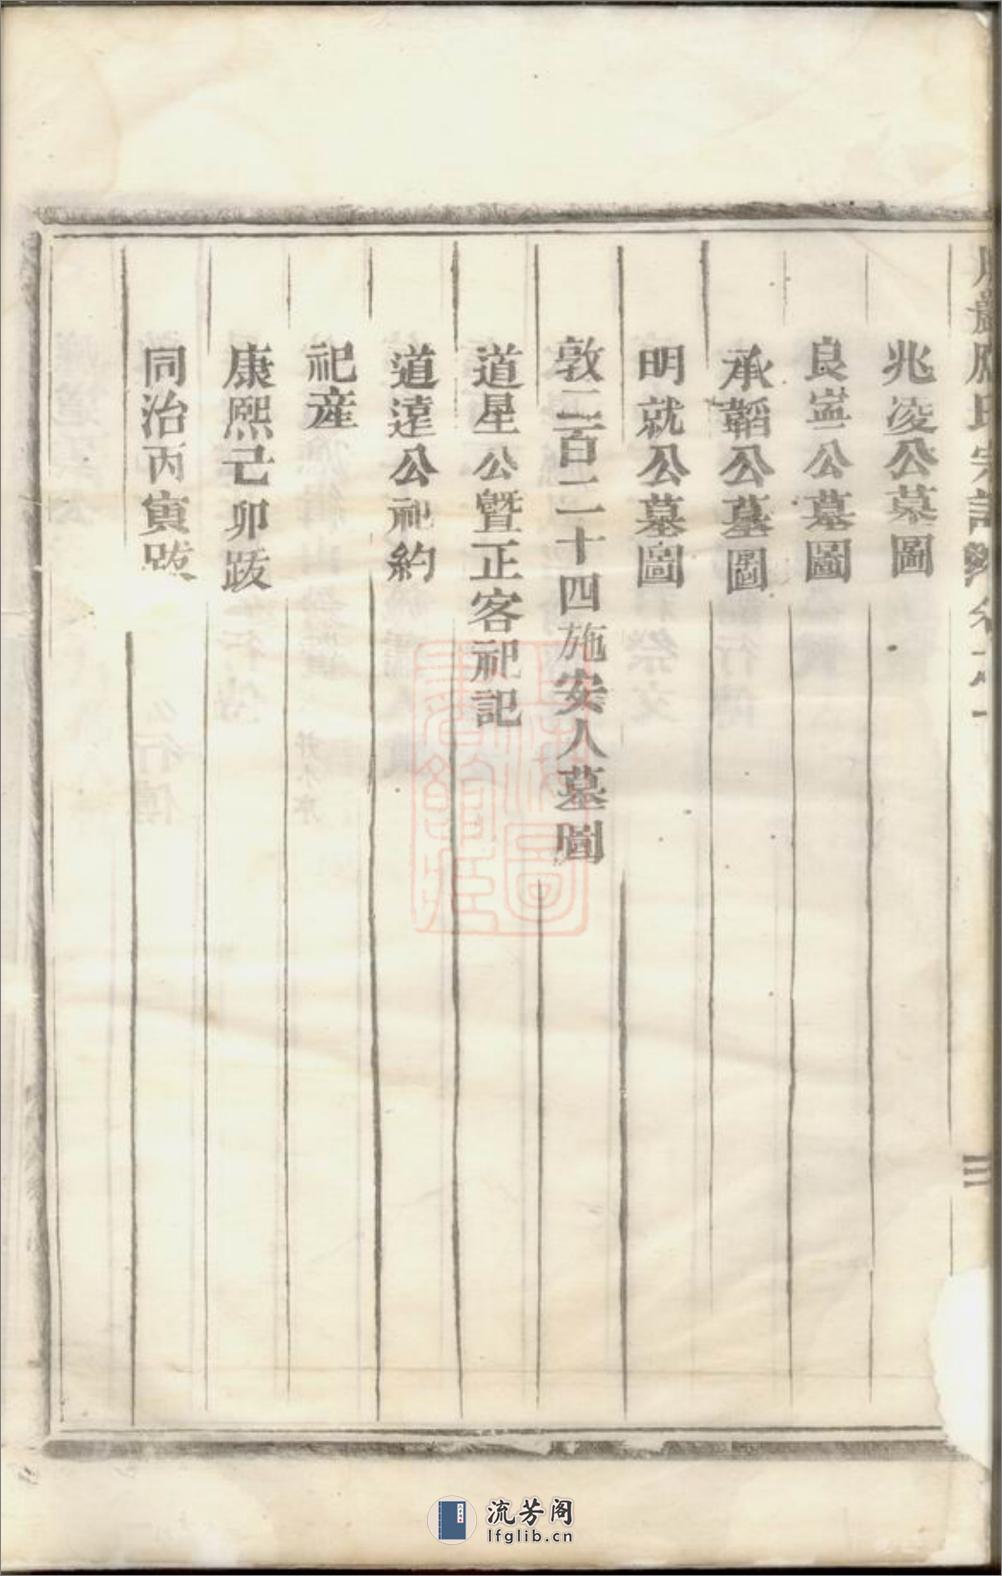 兆凌公墓圖
良寍公墓圖
承韜公墓圖
明就公墓圖
敦二百二十四施安人墓圖
道星公暨正客祀記
道遠公祀約
祀産
康熙己卯跋
同治丙寅跋
三
流芳阁
lfglib.cn